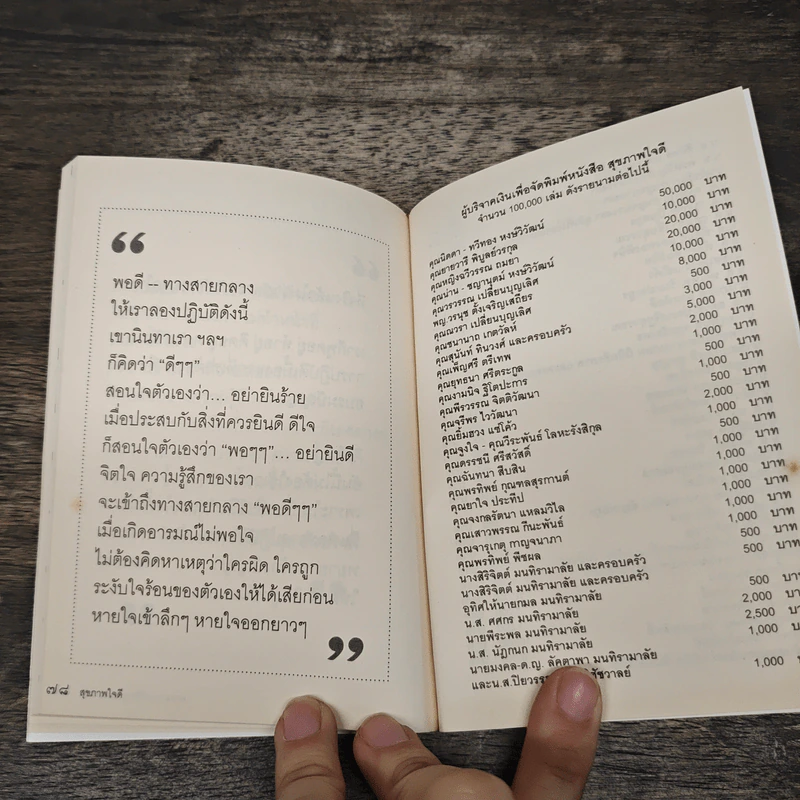 “
พอดี -- ทางสายกลาง
ให้เราลองปฏิบัติดังนี้
เขานินทาเรา ฯลฯ
ก็คิดว่า “ดีๆๆ”
สอนใจตัวเองว่า... อย่ายินร้าย
เมื่อประสบกับสิ่งที่ควรยินดี ดีใจ
ก็สอนใจตัวเองว่า “พอๆๆ”... อย่ายินดี
จิตใจ ความรู้สึกของเรา
จะเข้าถึงทางสายกลาง “พอดีๆๆ”
เมื่อเกิดอารมณ์ไม่พอใจ
ไม่ต้องคิดหาเหตุว่าใครผิด ใครถูก
ระงับใจร้อนของตัวเองให้ได้เสียก่อน
หายใจเข้าลึกๆ หายใจออกยาวๆ
”
๗๘ สุขภาพใจดี
ผู้บริจาคเงินเพื่อจัดพิมพ์หนังสือ สุขภาพใจดี
จำนวน 100,000 เล่ม ดังรายนามต่อไปนี้
คุณนิดดา - ทวีทอง หงษ์วิวัฒน์ 50,000 บาท
คุณยายวารี พิบูลย์วรกุล 10,000 บาท
คุณหญิงฉวีวรรณ ถมยา 20,000 บาท
คุณน่าน - ชญานุตม์ หงษ์วิวัฒน์ 20,000 บาท
คุณวรวรรณ เปลี่ยนบุญเลิศ 10,000 บาท
พญ.วรนุช ตั้งเจริญเสถียร 8,000 บาท
คุณณวรา เปลี่ยนบุญเลิศ 500 บาท
คุณชนานาถ เกตวัลห์ 3,000 บาท
คุณสุนันท์ ทินวงศ์ และครอบครัว 5,000 บาท
คุณเพ็ญศรี ตรีเทพ 2,000 บาท
คุณยุทธนา ศรีตระกูล 1,000 บาท
คุณงามนิจ ฐิโตปะการ 500 บาท
คุณพีรวรรณ จิตติวัฒนา 1,000 บาท
คุณจรีพร ไววัฒนา 500 บาท
คุณยิ้มฮวง แซ่โค้ว 2,000 บาท
คุณจูงใจ - คุณวีระพันธ์ โลหะรังสิกุล 1,000 บาท
คุณดรรชนี ศรีสวัสดิ์ 500 บาท
คุณฉันทนา สืบสิน 1,000 บาท
คุณพรทิพย์ กุณฑลสุรกานต์ 500 บาท
คุณยาใจ ประทีป 1,000 บาท
คุณจงกลรัตนา แหลมวิไล 1,000 บาท
คุณเสาวพรรณ กีนะพันธ์ 1,000 บาท
คุณจารุเกตุ กาญจนาภา 500 บาท
คุณพรทิพย์ พืชผล 500 บาท
นางสิริจิตต์ มนทิรามาลัย และครอบครัว
นางสิริจิตต์ มนทิรามาลัย และครอบครัว
อุทิศให้นายกมล มนทิรามาลัย 500 บาท
น.ส. ศศกร มนทิรามาลัย 2,000 บาท
นายพีระพล มนทิรามาลัย 2,500 บาท
น.ส. นัฏกนก มนทิรามาลัย 1,000 บาท
นายมงคล-ด.ญ. มนทิรามาลัย
และน.ส. 1,000 บาท